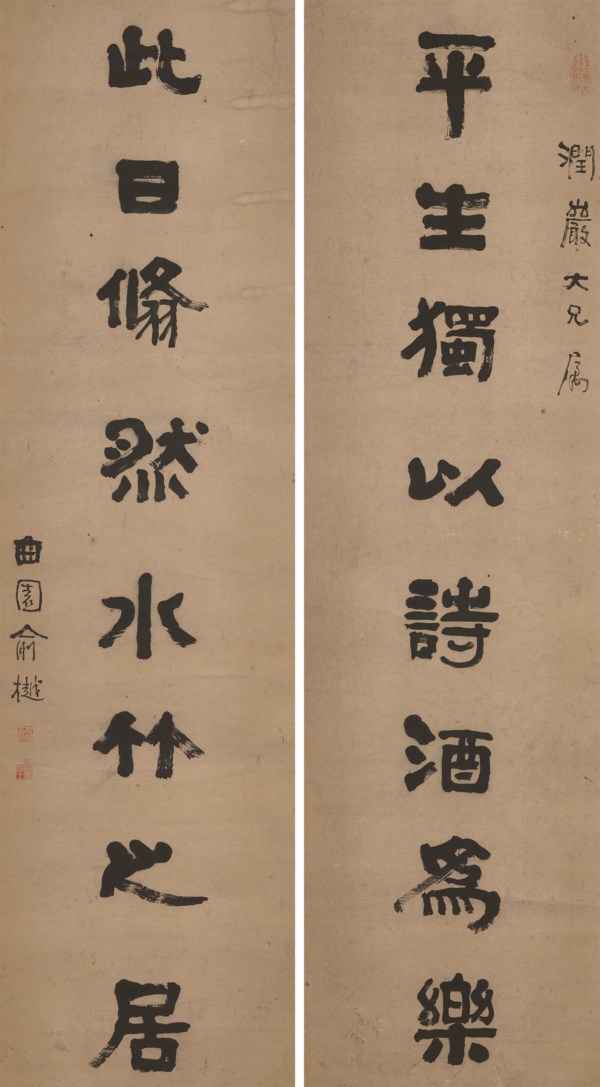 潤巖大兄属
平生獨以詩酒為樂
此日翛然水竹之居
曲園俞樾